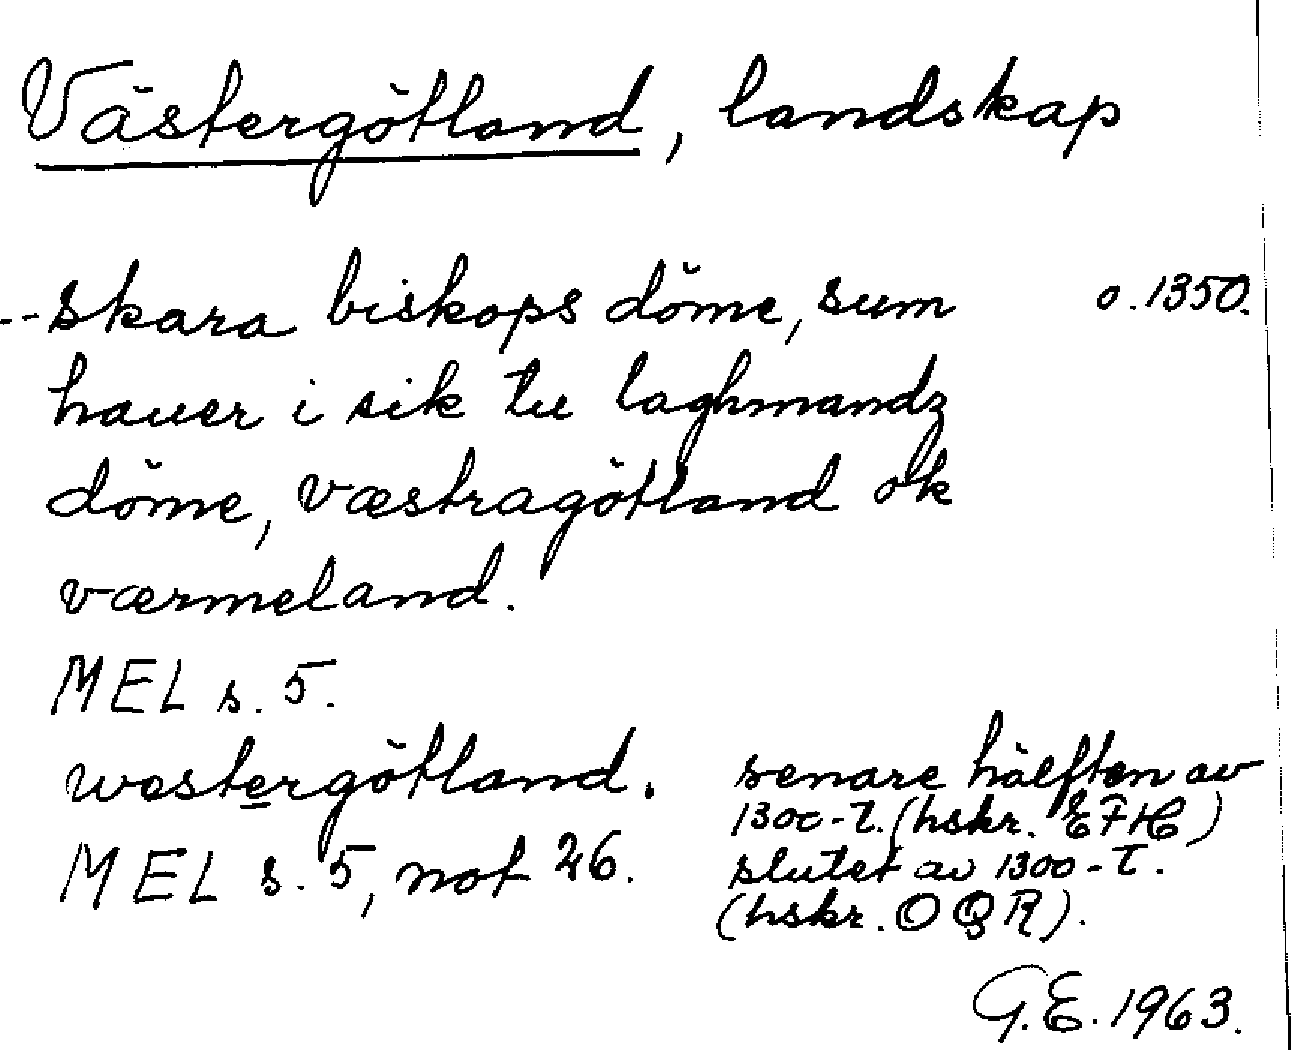 Västergötland, landskap
--skara biskops döme, sum o. 1350.
hauer i sik tu laghmandz
döme, væstragötland ok
værmeland.
MEL s. 5.
westergötland. senare hälften av
1300-t. (hskr. EFH)
MEL s. 5, not 26. slutet av 1300-t.
(hskr. OQR).
G.E. 1963.